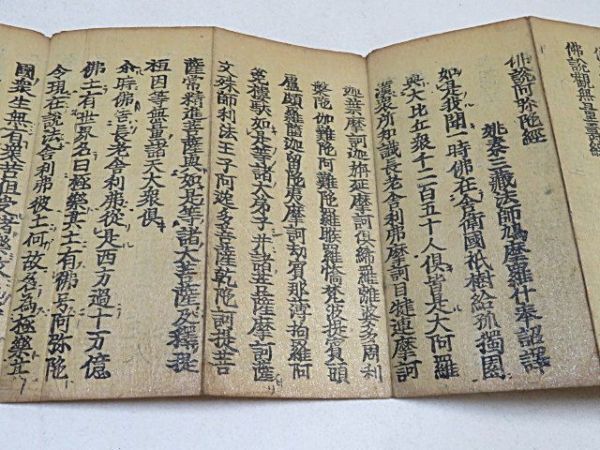 佛說觀無量壽經
佛說阿弥陀經
姚秦三藏法師鳩摩羅什奉詔譯
如是我聞一時佛在舍衛國祇樹給孤獨園
與大比丘衆千二百五十人俱皆是大阿羅
漢衆所知識長老舍利弗摩訶目犍連摩訶
迦葉摩訶迦旃延摩訶俱絺羅離婆多周利
槃陀伽難陀阿難陀羅睺羅憍梵波提賓頭
盧頗羅墮迦留陀夷摩訶劫賓那薄拘羅阿
㝹樓馱如是等諸大弟子并諸菩薩摩訶薩
文殊師利法王子阿逸多菩薩乾陀訶提菩
薩常精進菩薩與如是等諸大菩薩及釋提
桓因等無量諸天大衆俱
尒時佛告長老舍利弗從是西方過十万億
佛土有世界名曰極樂其土有佛号阿弥陀
今現在說法舍利弗彼土何故名為極樂其
國衆生無有衆苦但受諸樂故